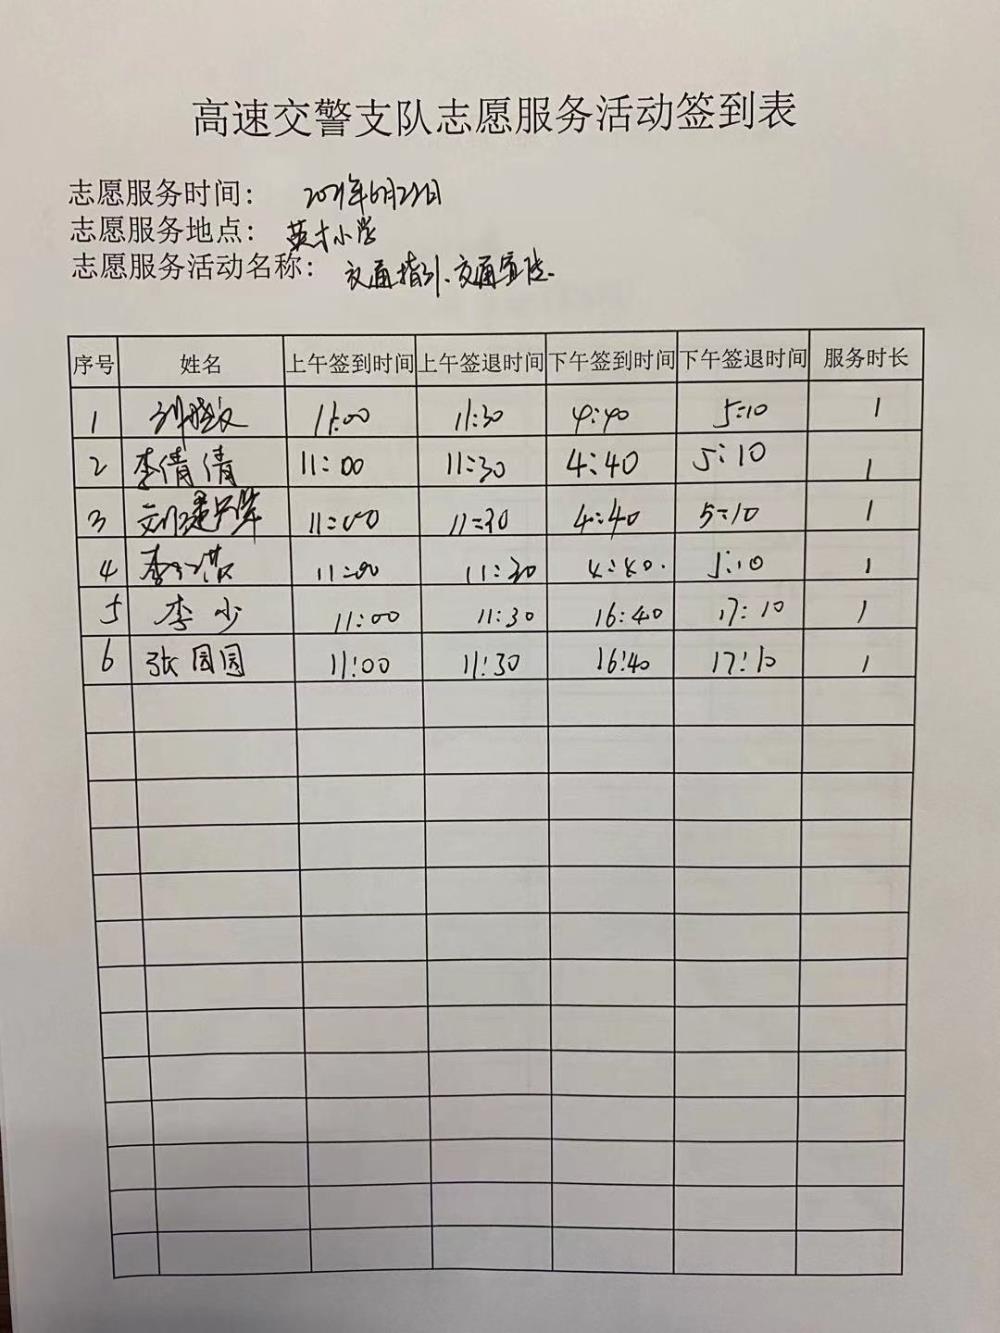 高速交警支队志愿服务活动签到表
志愿服务时间： 2021年6月23日
志愿服务地点： 英才小学
志愿服务活动名称： 交通指引、交通宣传.
序号 姓名 上午签到时间 上午签退时间 下午签到时间 下午签退时间 服务时长
1 11:00 11:30 4:40 5:10 1
2 李倩倩 11:00 11:30 4:40 5:10 1
3 11:00 11:30 4:40 5:10 1
4 11:00 11:30 4:40. 5:10 1
5 李少 11:00 11:30 16:40 17:10 1
6 张园园 11:00 11:30 16:40 17:10 1